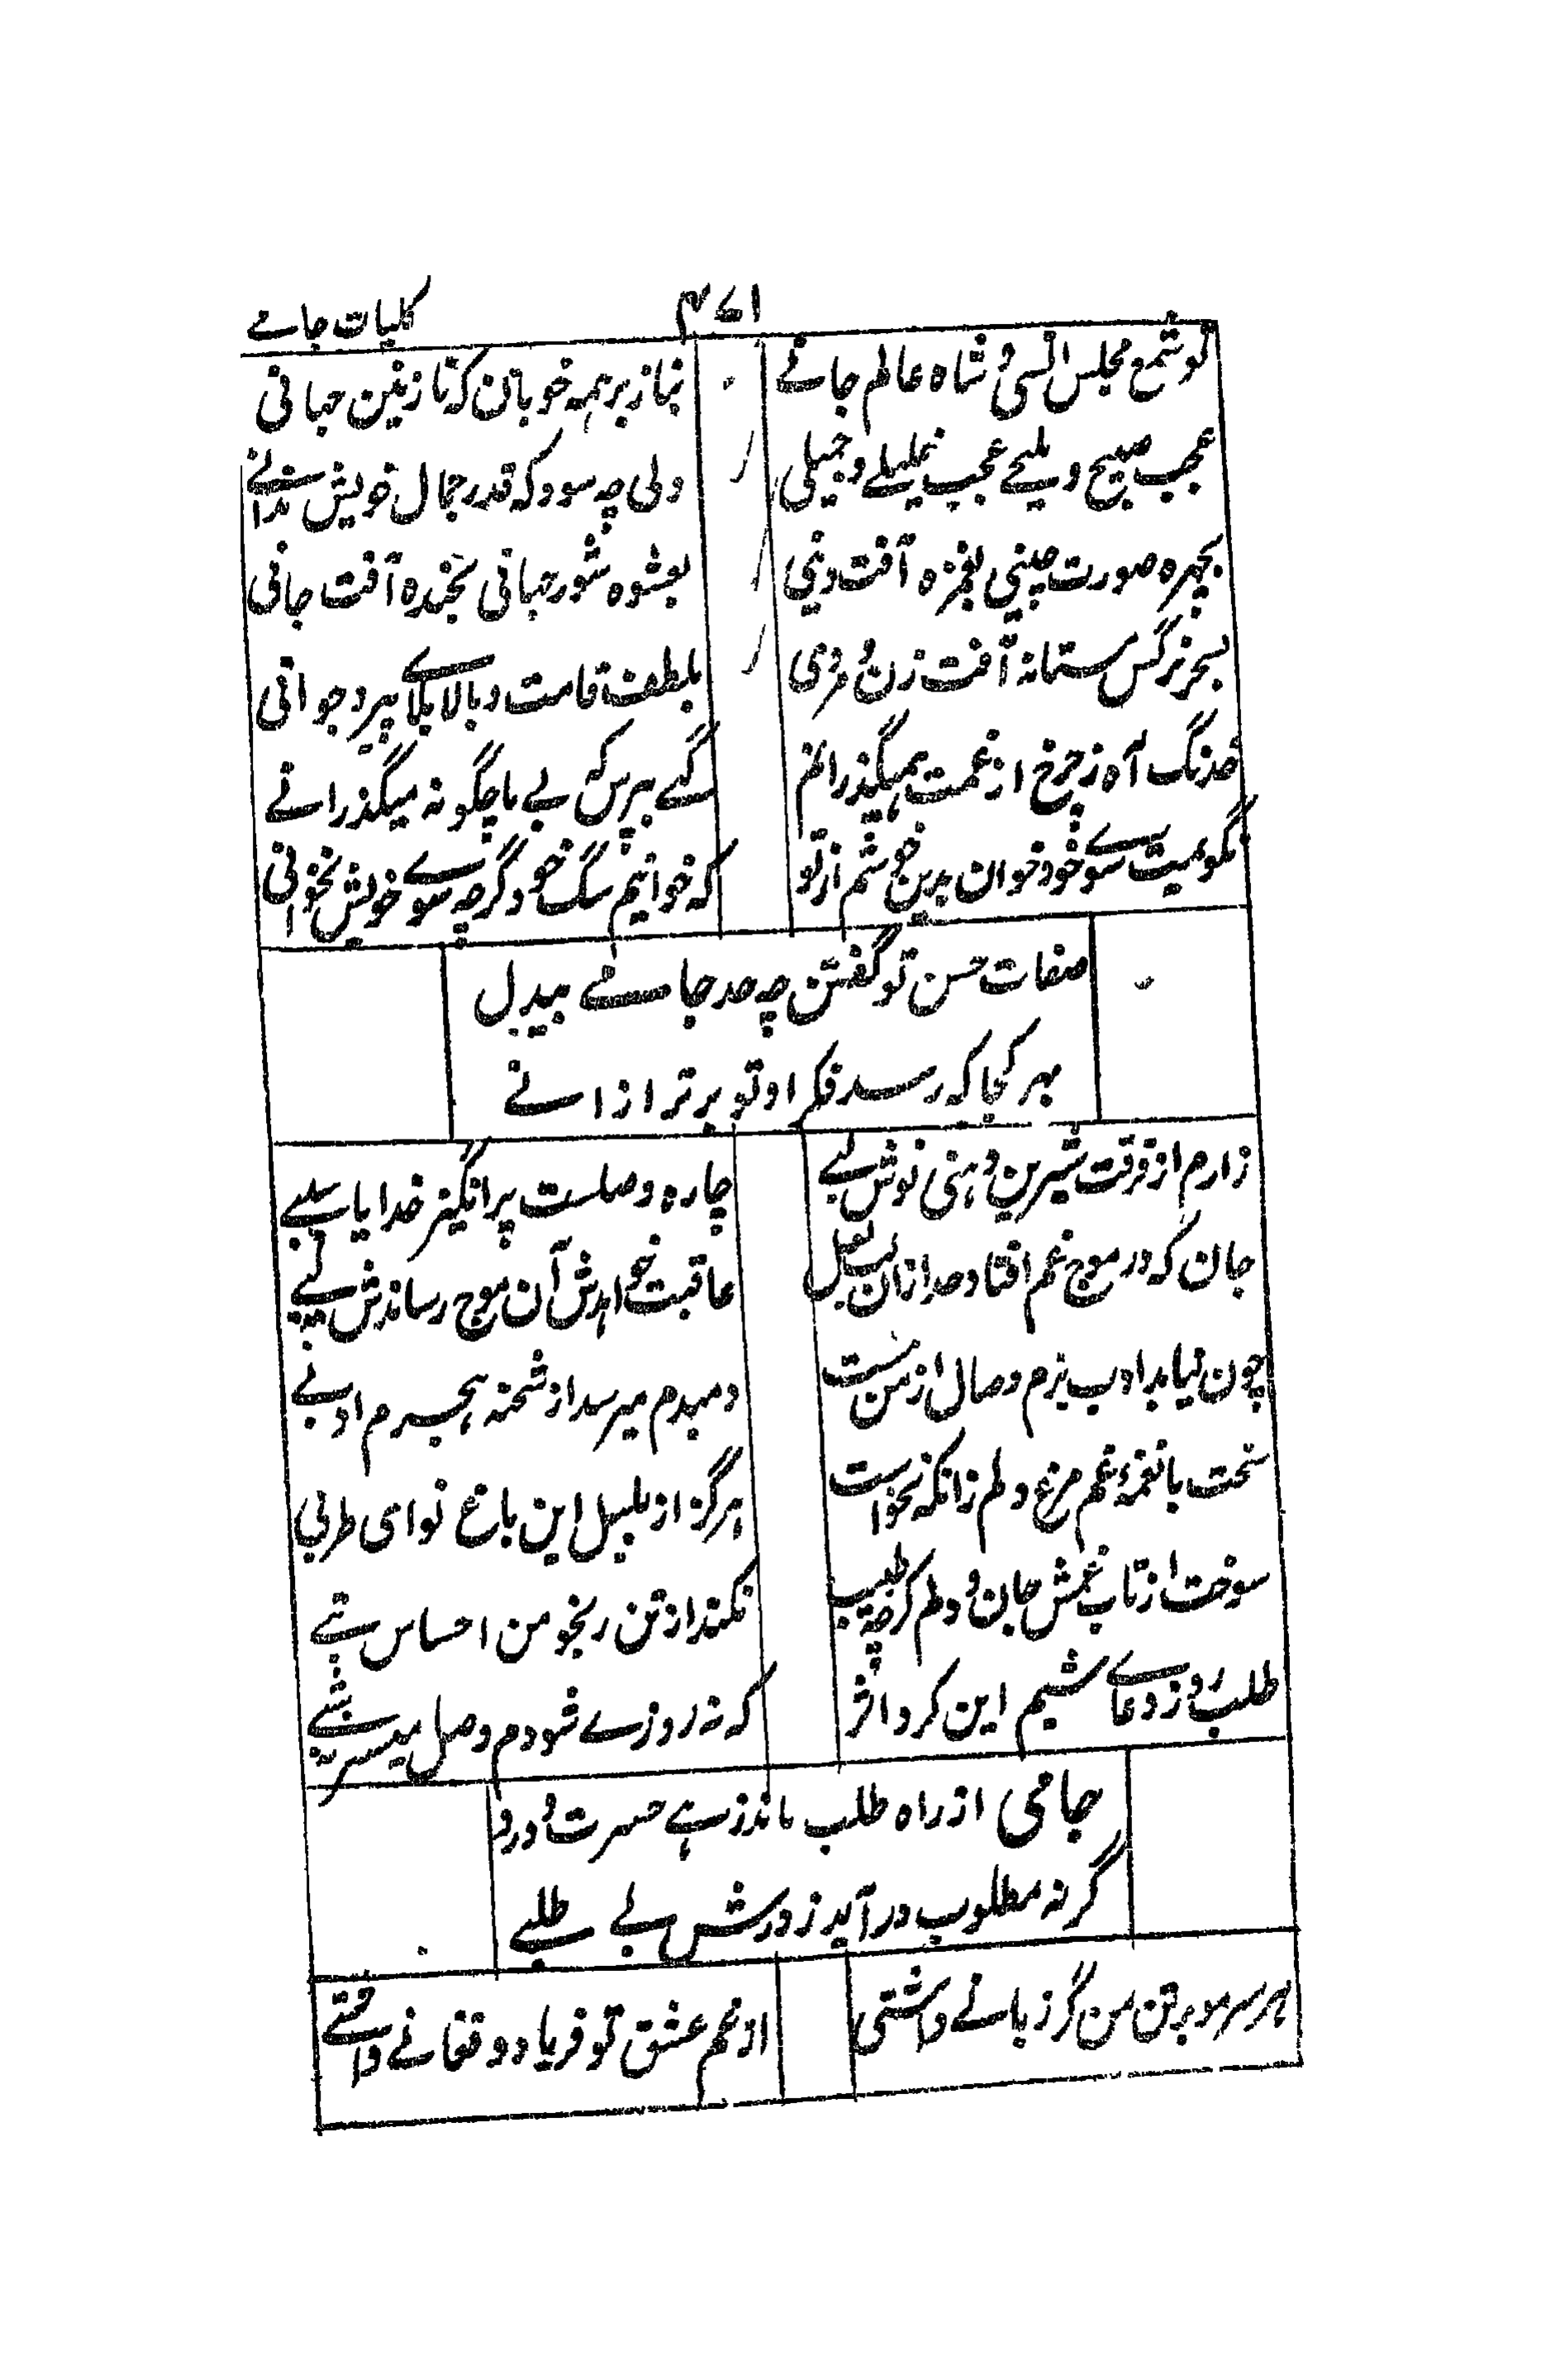 کلیات جامے
۴۷۱
تو شمع مجلس انسی و شاه عالم جانے
بناز بر همه خوبان که نازنین جهانی
عجب صبیح و ملیحے عجب جمیلی
ولی چه سود که قدر جمال خویش ندانے
بچهره صورت چینی بغمزه آفت دینی
بعشوه شور جهانی بخنده آفت جانی
بسحر نرگس مستانه آفت زن و مردی
بلطف قامت و بالا بلاے پیر و جوانی
خدنگ آه ز چرخ از غمت همیگذرانم
گہے بپرس که بے ما چگونه میگذرانے
نگویمت سوے خود خوان بدین خوشم از تو
که خوانیم سگ خود گرچه سوے خویش نخوانی
صفات حسن تو گفتن چه حد جامے بیدل
بهر کجا که رسد فکر او تو برتر از انے
زارم از فرقت شیرین دهنی نوش لبے
چاره وصلست برانگیز خدایا سببے
جان که در موج غم افتاد جدا زان لب لعل
عاقبت خواهدش آن موج رساندش بلبے
چون نیاید ادب بزم وصال از من مست
دمبدم میرسد از شحنه هجرم ادبے
سخت با نغمۂ غم مرغ دلم زانکه نخواست
هرگز از بلبل این باغ نوای طربی
سوخت از تاب غمش جان و دلم گرچه طبیب
نکند از تن رنجور من احساس تبے
طلب روز و دعاے شبم این کرد اثر
که نه روزے شودم وصل میسر نه شبے
جامی از راه طلب ماند زهے حسرت و درد
گر نه مطلوب در آید ز درش بے طلبے
هر سر مو بر تن من گر زبانے داشتی
از غم عشق تو فریاد و فغانے داشتے